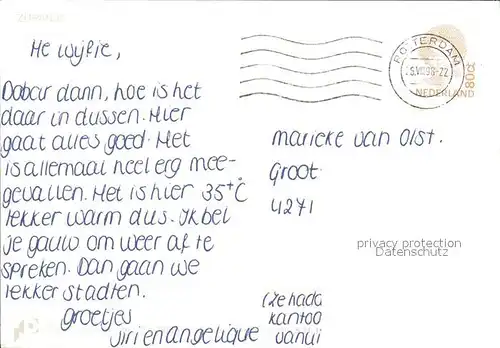 He wijfie,
Dobar dann, hoe is het
daar in dussen. Hier
gaat alles goed. Het
is allemaal heel erg mee-
gevallen. Het is hier 35+°C
lekker warm dus. Ik bel
je gauw om weer af te
spreken. Dan gaan we
lekker stadten.
groetjes
Jiri en angelique
ROTTERDAM
NEDERLAND
80ct
marieke van Olst.
Groot
4271
privacy protection
Datenschutz
(ze hadd
kantoo
vanui